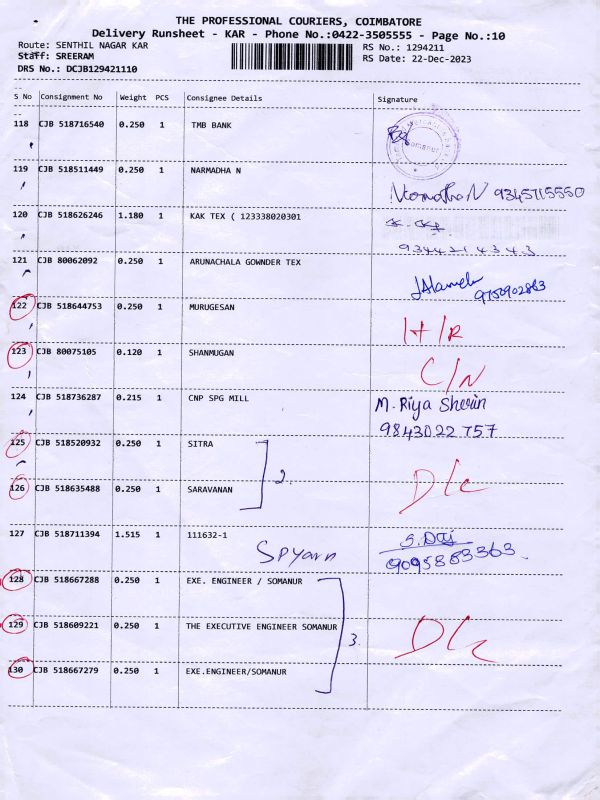 THE PROFESSIONAL COURIERS, COIMBATORE
Delivery Runsheet - KAR - Phone No.:0422-3505555 - Page No.:10
Route: SENTHIL NAGAR KAR RS No.: 1294211
Staff: SREERAM RS Date: 22-Dec-2023
DRS No.: DCJB129421110
S No Consignment No Weight PCS Consignee Details Signature
118 CJB 518716540 0.250 1 TMB BANK
119 CJB 518511449 0.250 1 NARMADHA N
NarmadhaN 9345715550
120 CJB 518626246 1.180 1 KAK TEX ( 123338020301
9344214343
121 CJB 80062092 0.250 1 ARUNACHALA GOWNDER TEX
9750902863
122 CJB 518644753 0.250 1 MURUGESAN
H/R
123 CJB 80075105 0.120 1 SHANMUGAN
C/N
124 CJB 518736287 0.215 1 CNP SPG MILL
M. Riya Sherin
9843022757
125 CJB 518520932 0.250 1 SITRA
2
126 CJB 518635488 0.250 1 SARAVANAN
D/c
127 CJB 518711394 1.515 1 111632-1
SPyarn
9095883363
128 CJB 518667288 0.250 1 EXE. ENGINEER / SOMANUR
129 CJB 518609221 0.250 1 THE EXECUTIVE ENGINEER SOMANUR
3. D/c
130 CJB 518667279 0.250 1 EXE.ENGINEER/SOMANUR